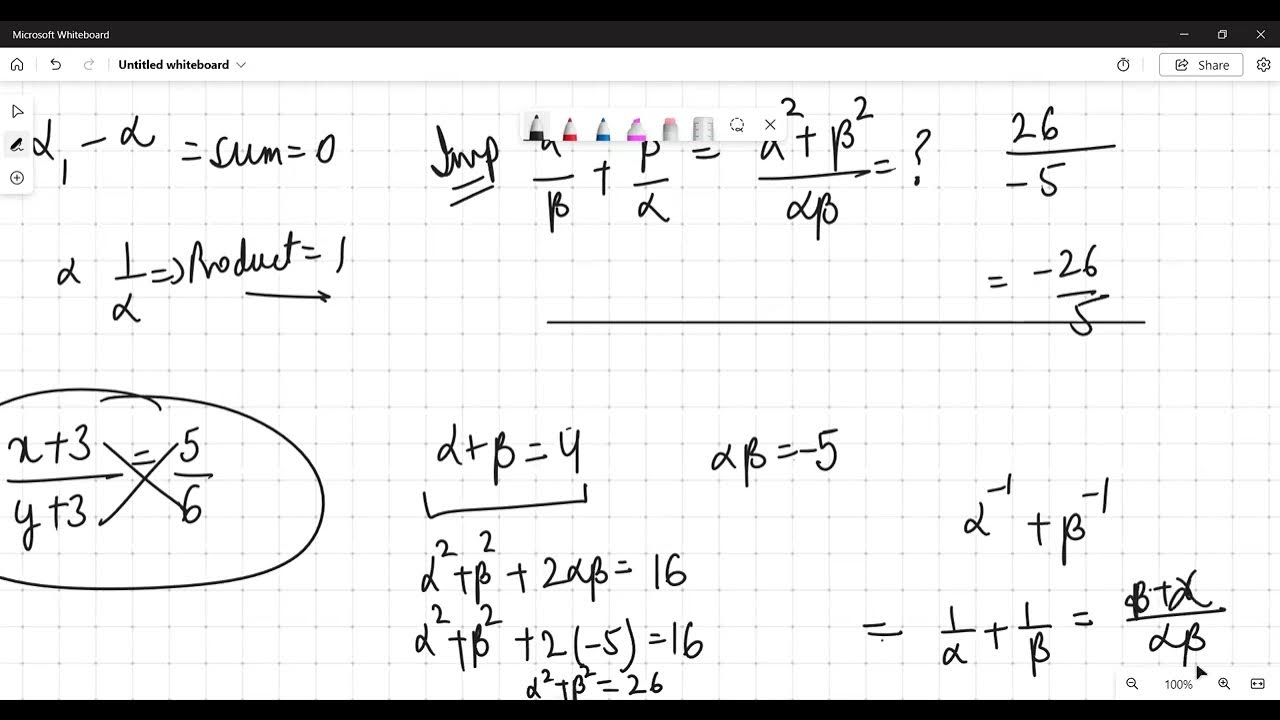 Microsoft Whiteboard
Untitled whiteboard
Share
α, -α = sum = 0
α 1/α => Product = 1
Imp α/β + β/α = α²+β²/αβ = ?
26/-5
= -26/5
x+3/y+3 = 5/6
α+β = 4
αβ = -5
α²+β² + 2αβ = 16
α²+β² + 2(-5) = 16
α²+β² = 26
α⁻¹ + β⁻¹
= 1/α + 1/β = β+α/αβ
100%